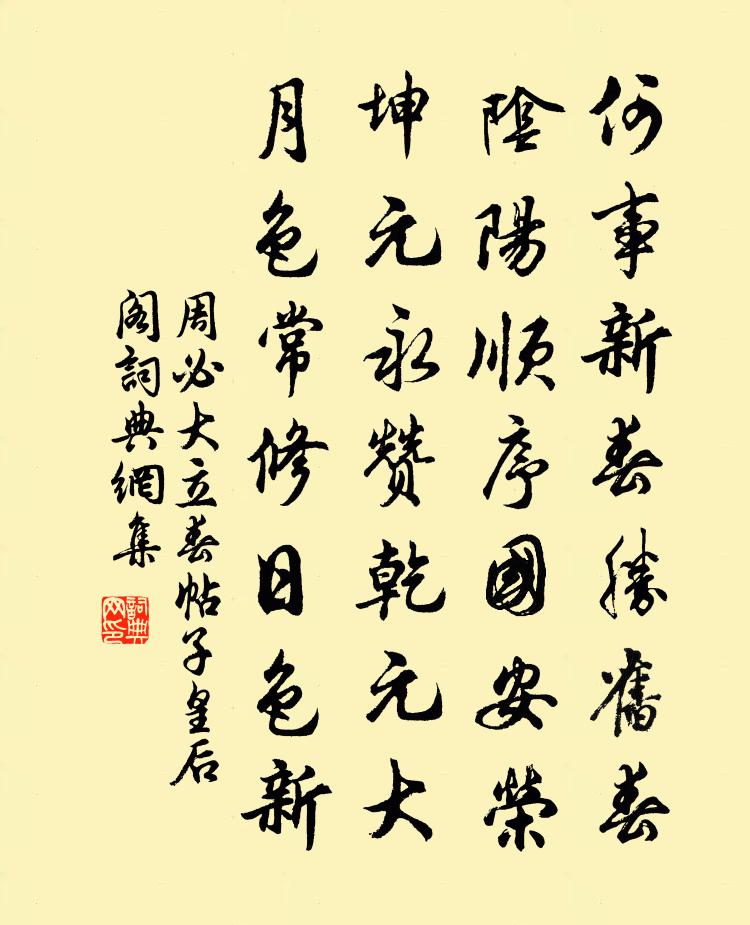 何事新春勝舊春
陰陽順序國安榮
坤元永贊乾元大
月色常修日色新
周必大立春帖子皇后
閣詞典網集
詞典
网印